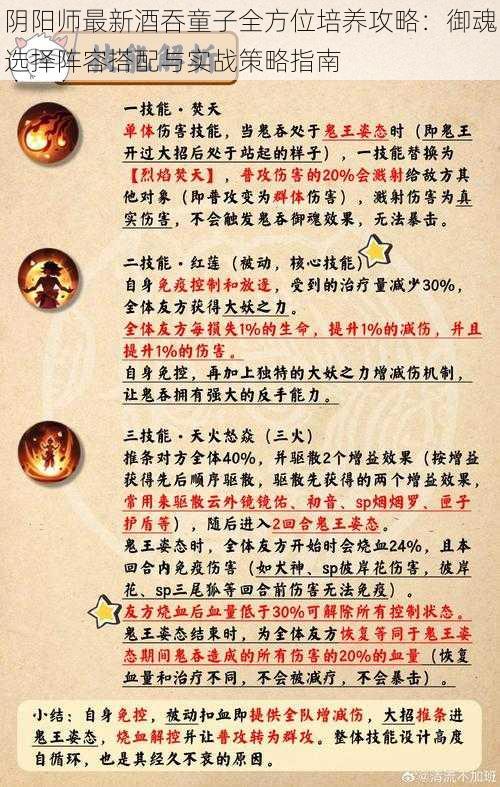 阴阳师最新酒吞童子全方位培养攻略：御魂
选择阵容搭配与实战策略指南
一技能·焚天
单体伤害技能，当鬼吞处于鬼王姿态时（即鬼王
开过大招后处于站起的样子），一技能替换为
【烈焰焚天】，普攻伤害的20%会溅射给敌方其
他对象（即普攻变为群体伤害），溅射伤害为真
实伤害，不会触发鬼吞御魂效果，无法暴击。
二技能·红莲（被动，核心技能）
自身免疫控制和放逐，受到的治疗量减少30%，
全体友方获得大妖之力。
全体友方每损失1%的生命，提升1%的减伤，并且
提升1%的伤害。
自身免控，再加上独特的大妖之力增减伤机制，
让鬼吞拥有强大的反手能力。
三技能·天火怒焱（三火）
推条对方全体40%，并驱散2个增益效果（按增益
获得先后顺序驱散，驱散先获得的两个增益效果，
常用来驱散云外镜镜佑、初音、sp烟烟罗、匣子
护盾等），随后进入2回合鬼王姿态。
鬼王姿态时，全体友方开始时会烧血24%，且本
回合内免疫伤害（如犬神、sp彼岸花伤害，彼岸
花、sp三尾狐等回合前伤害无法免疫）。
友方烧血后血量低于30%可解除所有控制状态。
鬼王姿态结束时，为全体友方恢复等同于鬼王姿
态期间鬼吞造成的所有伤害的20%的血量（恢复
血量和治疗不同，不会被减疗，不会暴击）。
小结：自身免控，被动扣血即提供全队增减伤，大招推条进
鬼王姿态，烧血解控并让普攻转为群攻。整体技能设计高度
自循环，也是其经久不衰的原因。
@清流不加班